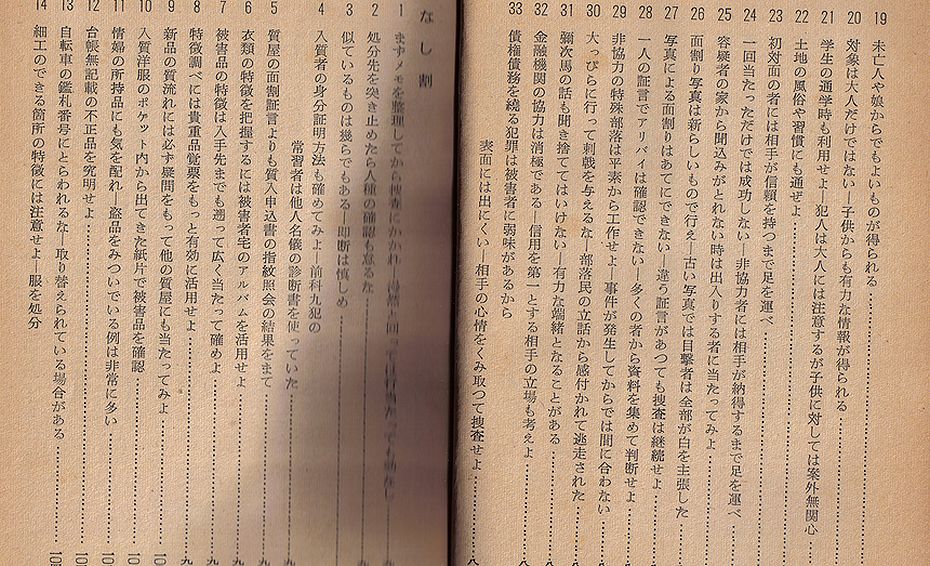 19 未亡人や娘からでもよいものが得られる
20 対象は大人だけではない―子供からも有力な情報が得られる
21 学生の通学時も利用せよ―犯人は大人には注意するが子供に対しては案外無関心
22 土地の風俗や習慣にも通ぜよ
23 初対面の者には相手が信頼を持つまで足を運べ
24 一回当たっただけでは成功しない―非協力者には相手が納得するまで足を運べ
25 容疑者の家から聞込みがとれない時は出入りする者に当たってみよ
26 面割り写真は新らしいもので行え―古い写真では目撃者は全部が白を主張した
27 写真による面割りはあてにできない―違う証言があつても捜査は継続せよ
28 一人の証言でアリバイは確認できない―多くの者から資料を集めて判断せよ
29 非協力の特殊部落は平素から工作せよ―事件が発生してからでは間に合わない
30 大っぴらに行って刺戟を与えるな―部落民の立話から感付かれて逃走された
31 彌次馬の話も聞き捨ててはいけない―有力な端緒となることがある
32 金融機関の協力は消極である―信用を第一とする相手の立場も考え
33 債権債務を繞る犯罪は被害者に弱味があるから
表面には出にくい―相手の心情をくみ取つて捜査せよ
なし割
1 まずメモを整理してから捜査にかかれ
2 処分先を突き止めたら人種の確認も怠るな
3 似ているものは幾らでもある―即断は慎しめ
4 入質者の身分証明方法も確めてみよ―前科九犯の
常習者は他人名儀の診断書を使っていた
5 質屋の面割証言よりも質入申込書の指紋照会の結果をまて
6 衣類の特徴を把握するには被害者宅のアルバムを活用せよ
7 被害品の特徴は入手先までも遡って広く当たって確めよ
8 特徴調べには貴重品覚票をもっと有効に活用せよ
9 新品の質流れには必ず疑問をもって他の質屋にも当たってみよ
10 入質洋服のポケット内から出てきた紙片で被害品を確認
11 情婦の所持品にも気を配れ―盗品をみついでいる例は非常に多い
12 台帳無記載の不正品を究明せよ
13 自転車の鑑札番号にとらわれるな―取り替えられている場合がある
14 細工のできる箇所の特徴には注意せよ―服を処分